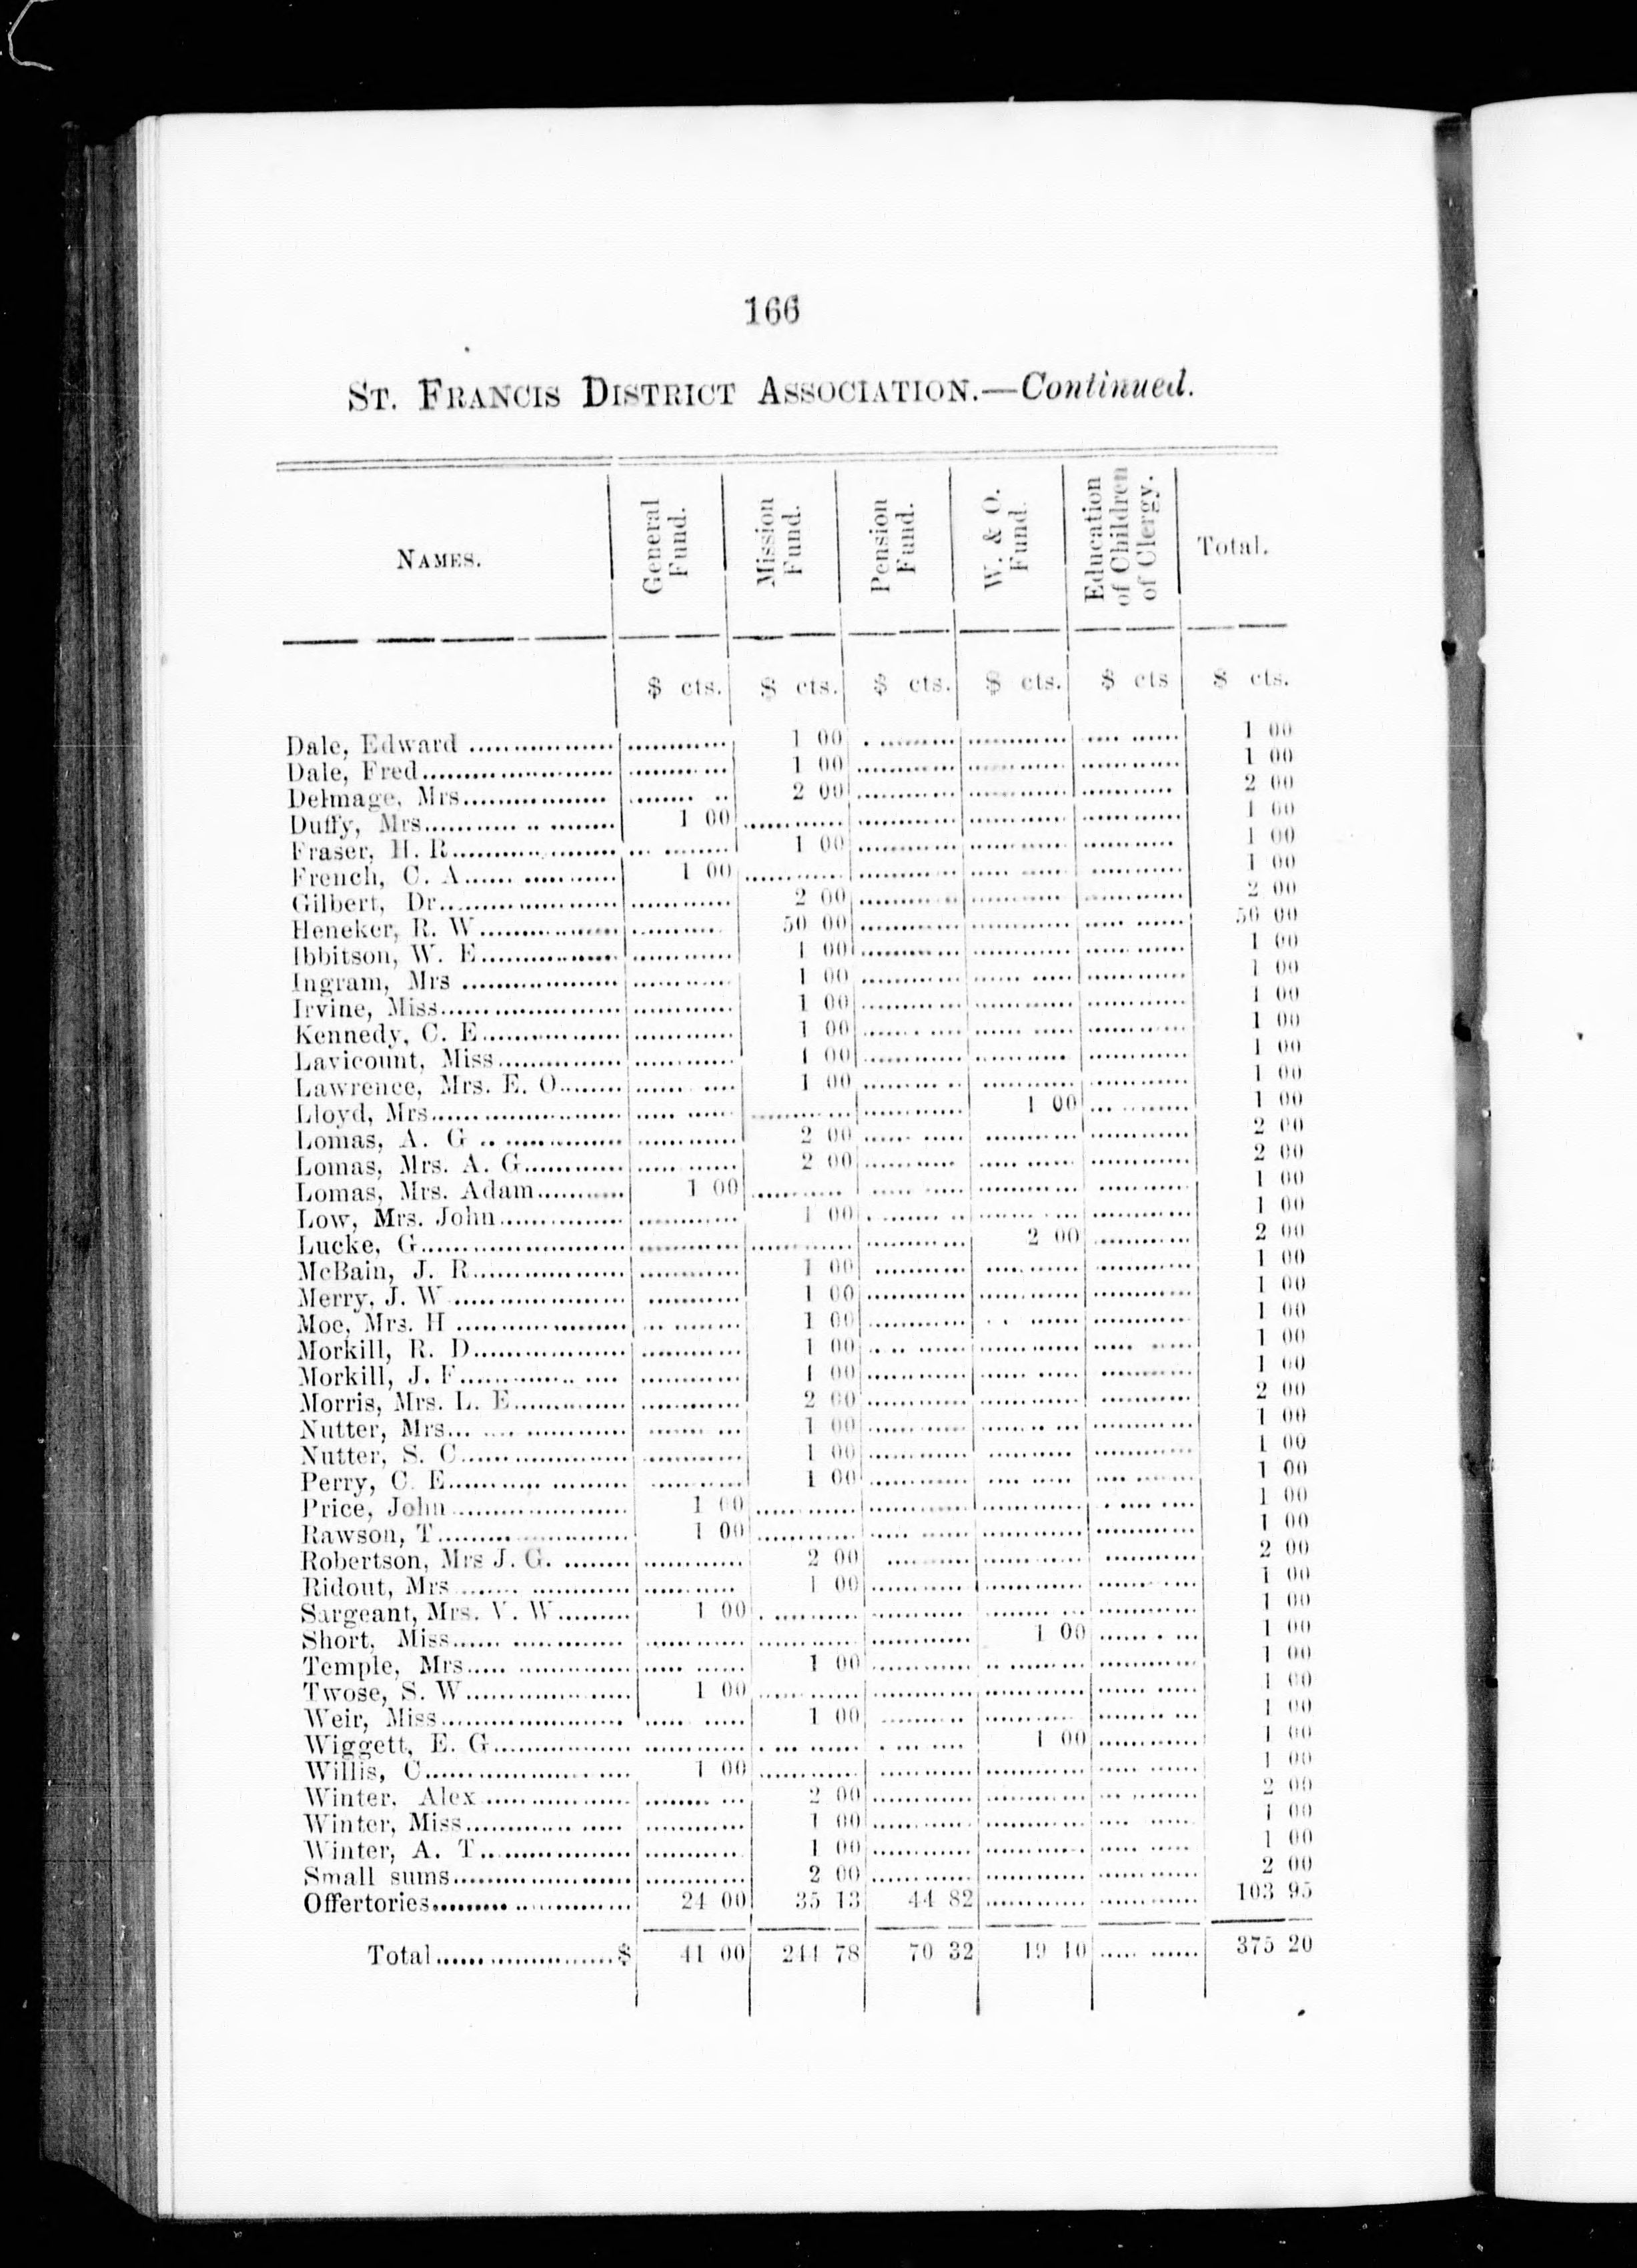 166
ST. FRANCIS DISTRICT ASSOCIATION.—Continued.
NAMES. General Fund. Mission Fund. Pension Fund. W. & O. Fund. Education of Children of Clergy. Total.
$ cts. $ cts. $ cts. $ cts. $ cts $ cts.
Dale, Edward 1 00 1 00
Dale, Fred 1 00 1 00
Delmage, Mrs 2 00 2 00
Duffy, Mrs 1 00 1 00
Fraser, H. R 1 00 1 00
French, C. A 1 00 1 00
Gilbert, Dr 2 00 2 00
Heneker, R. W 50 00 50 00
Ibbitson, W. E 1 00 1 00
Ingram, Mrs 1 00 1 00
Irvine, Miss 1 00 1 00
Kennedy, C. E 1 00 1 00
Lavicount, Miss 1 00 1 00
Lawrence, Mrs. E. O 1 00 1 00
Lloyd, Mrs 1 00 1 00
Lomas, A. G 2 00 2 00
Lomas, Mrs. A. G 2 00 2 00
Lomas, Mrs. Adam 1 00 1 00
Low, Mrs. John 1 00 1 00
Lucke, G 2 00 2 00
McBain, J. R 1 00 1 00
Merry, J. W 1 00 1 00
Moe, Mrs. H 1 00 1 00
Morkill, R. D 1 00 1 00
Morkill, J. F 1 00 1 00
Morris, Mrs. L. E 2 00 2 00
Nutter, Mrs 1 00 1 00
Nutter, S. C 1 00 1 00
Perry, C. E 1 00 1 00
Price, John 1 00 1 00
Rawson, T 1 00 1 00
Robertson, Mrs J. G. 2 00 2 00
Ridout, Mrs 1 00 1 00
Sargeant, Mrs. V. W 1 00 1 00
Short, Miss 1 00 1 00
Temple, Mrs 1 00 1 00
Twose, S. W 1 00 1 00
Weir, Miss 1 00 1 00
Wiggett, E. G 1 00 1 00
Willis, C 1 00 1 00
Winter, Alex 2 00 2 00
Winter, Miss 1 00 1 00
Winter, A. T 1 00 1 00
Small sums 2 00 2 00
Offertories 24 00 35 13 44 82 103 95
Total $ 41 00 244 78 70 32 19 10 375 20